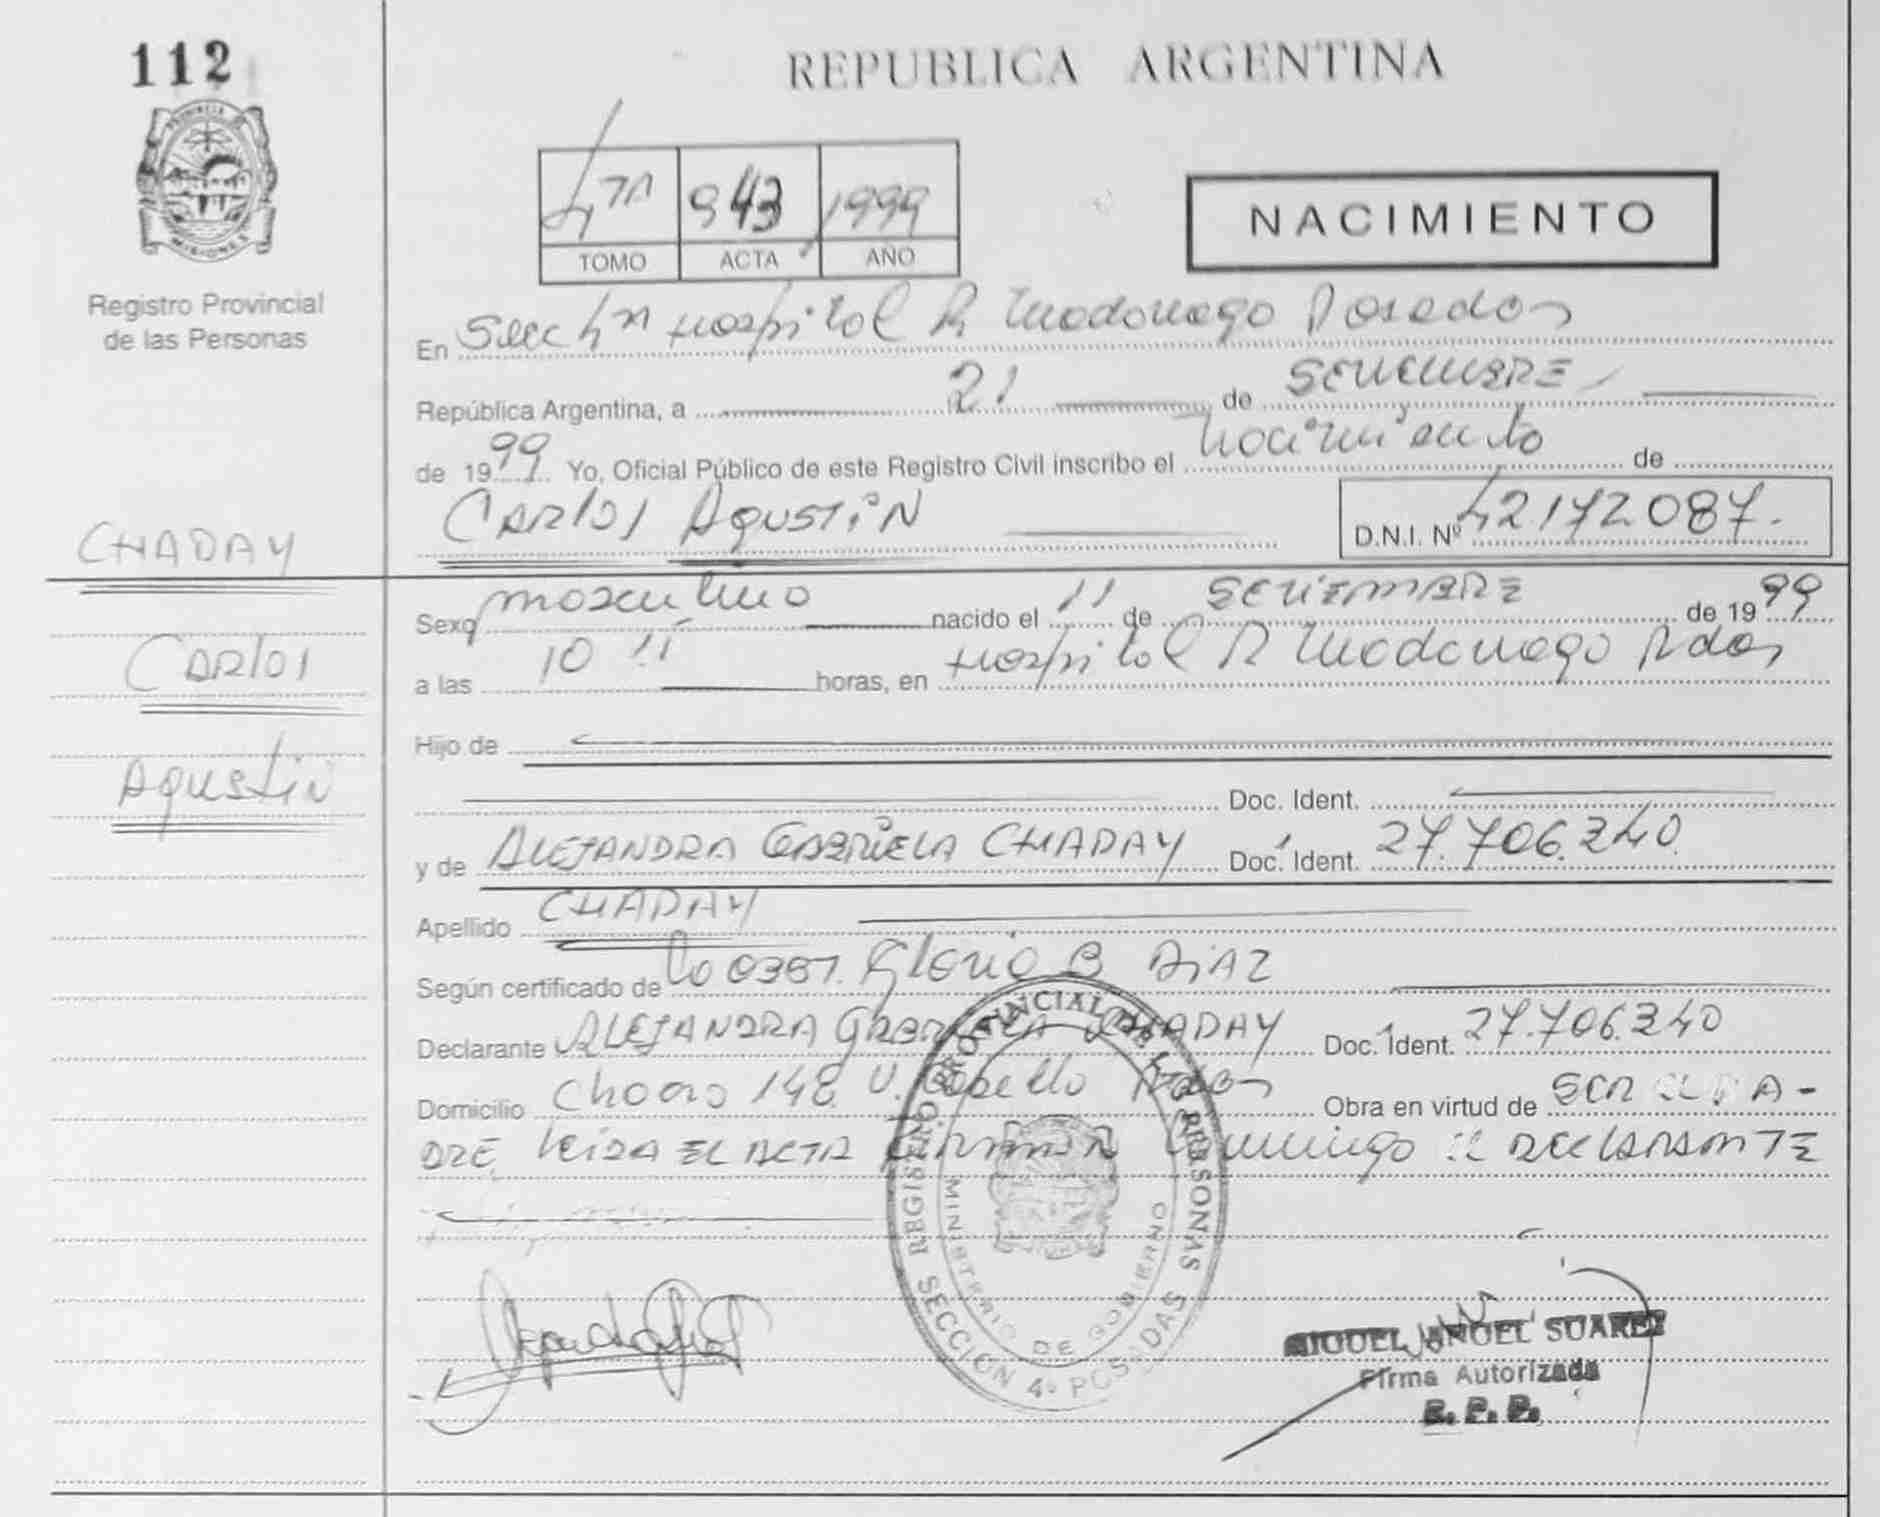 112
PROVINCIA DE
MISIONES
Registro Provincial
de las Personas
REPUBLICA ARGENTINA
943 1999
TOMO ACTA AÑO
NACIMIENTO
En Secc 4ta Hospital R Madariaga Posadas
República Argentina, a 21 de SETIEMBRE
de 1999 Yo, Oficial Público de este Registro Civil inscribo el nacimiento de
CARLOS AGUSTIN D.N.I. Nº 42.172.087.
CHADAY
CARLOS
AGUSTIN
Sexo masculino nacido el 11 de SETIEMBRE de 1999
a las 10 horas, en Hospital R Madariaga Pdas
Hijo de
Doc. Ident.
y de ALEJANDRA GABRIELA CHADAY Doc. Ident. 27.706.340.
Apellido CHADAY
Según certificado de Gloria B DIAZ
Declarante ALEJANDRA GABRIELA CHADAY Doc. Ident. 27.706.340
Domicilio Chaco 148 Pdas Obra en virtud de SER
LEIDA EL ACTA FIRMA conmigo DECLARANTE
REGISTRO PROVINCIAL DE LAS PERSONAS
MINISTERIO DE GOBIERNO
SECCION 4º POSADAS
MIGUEL ANGEL SUAREZ
Firma Autorizada
R. P. P.